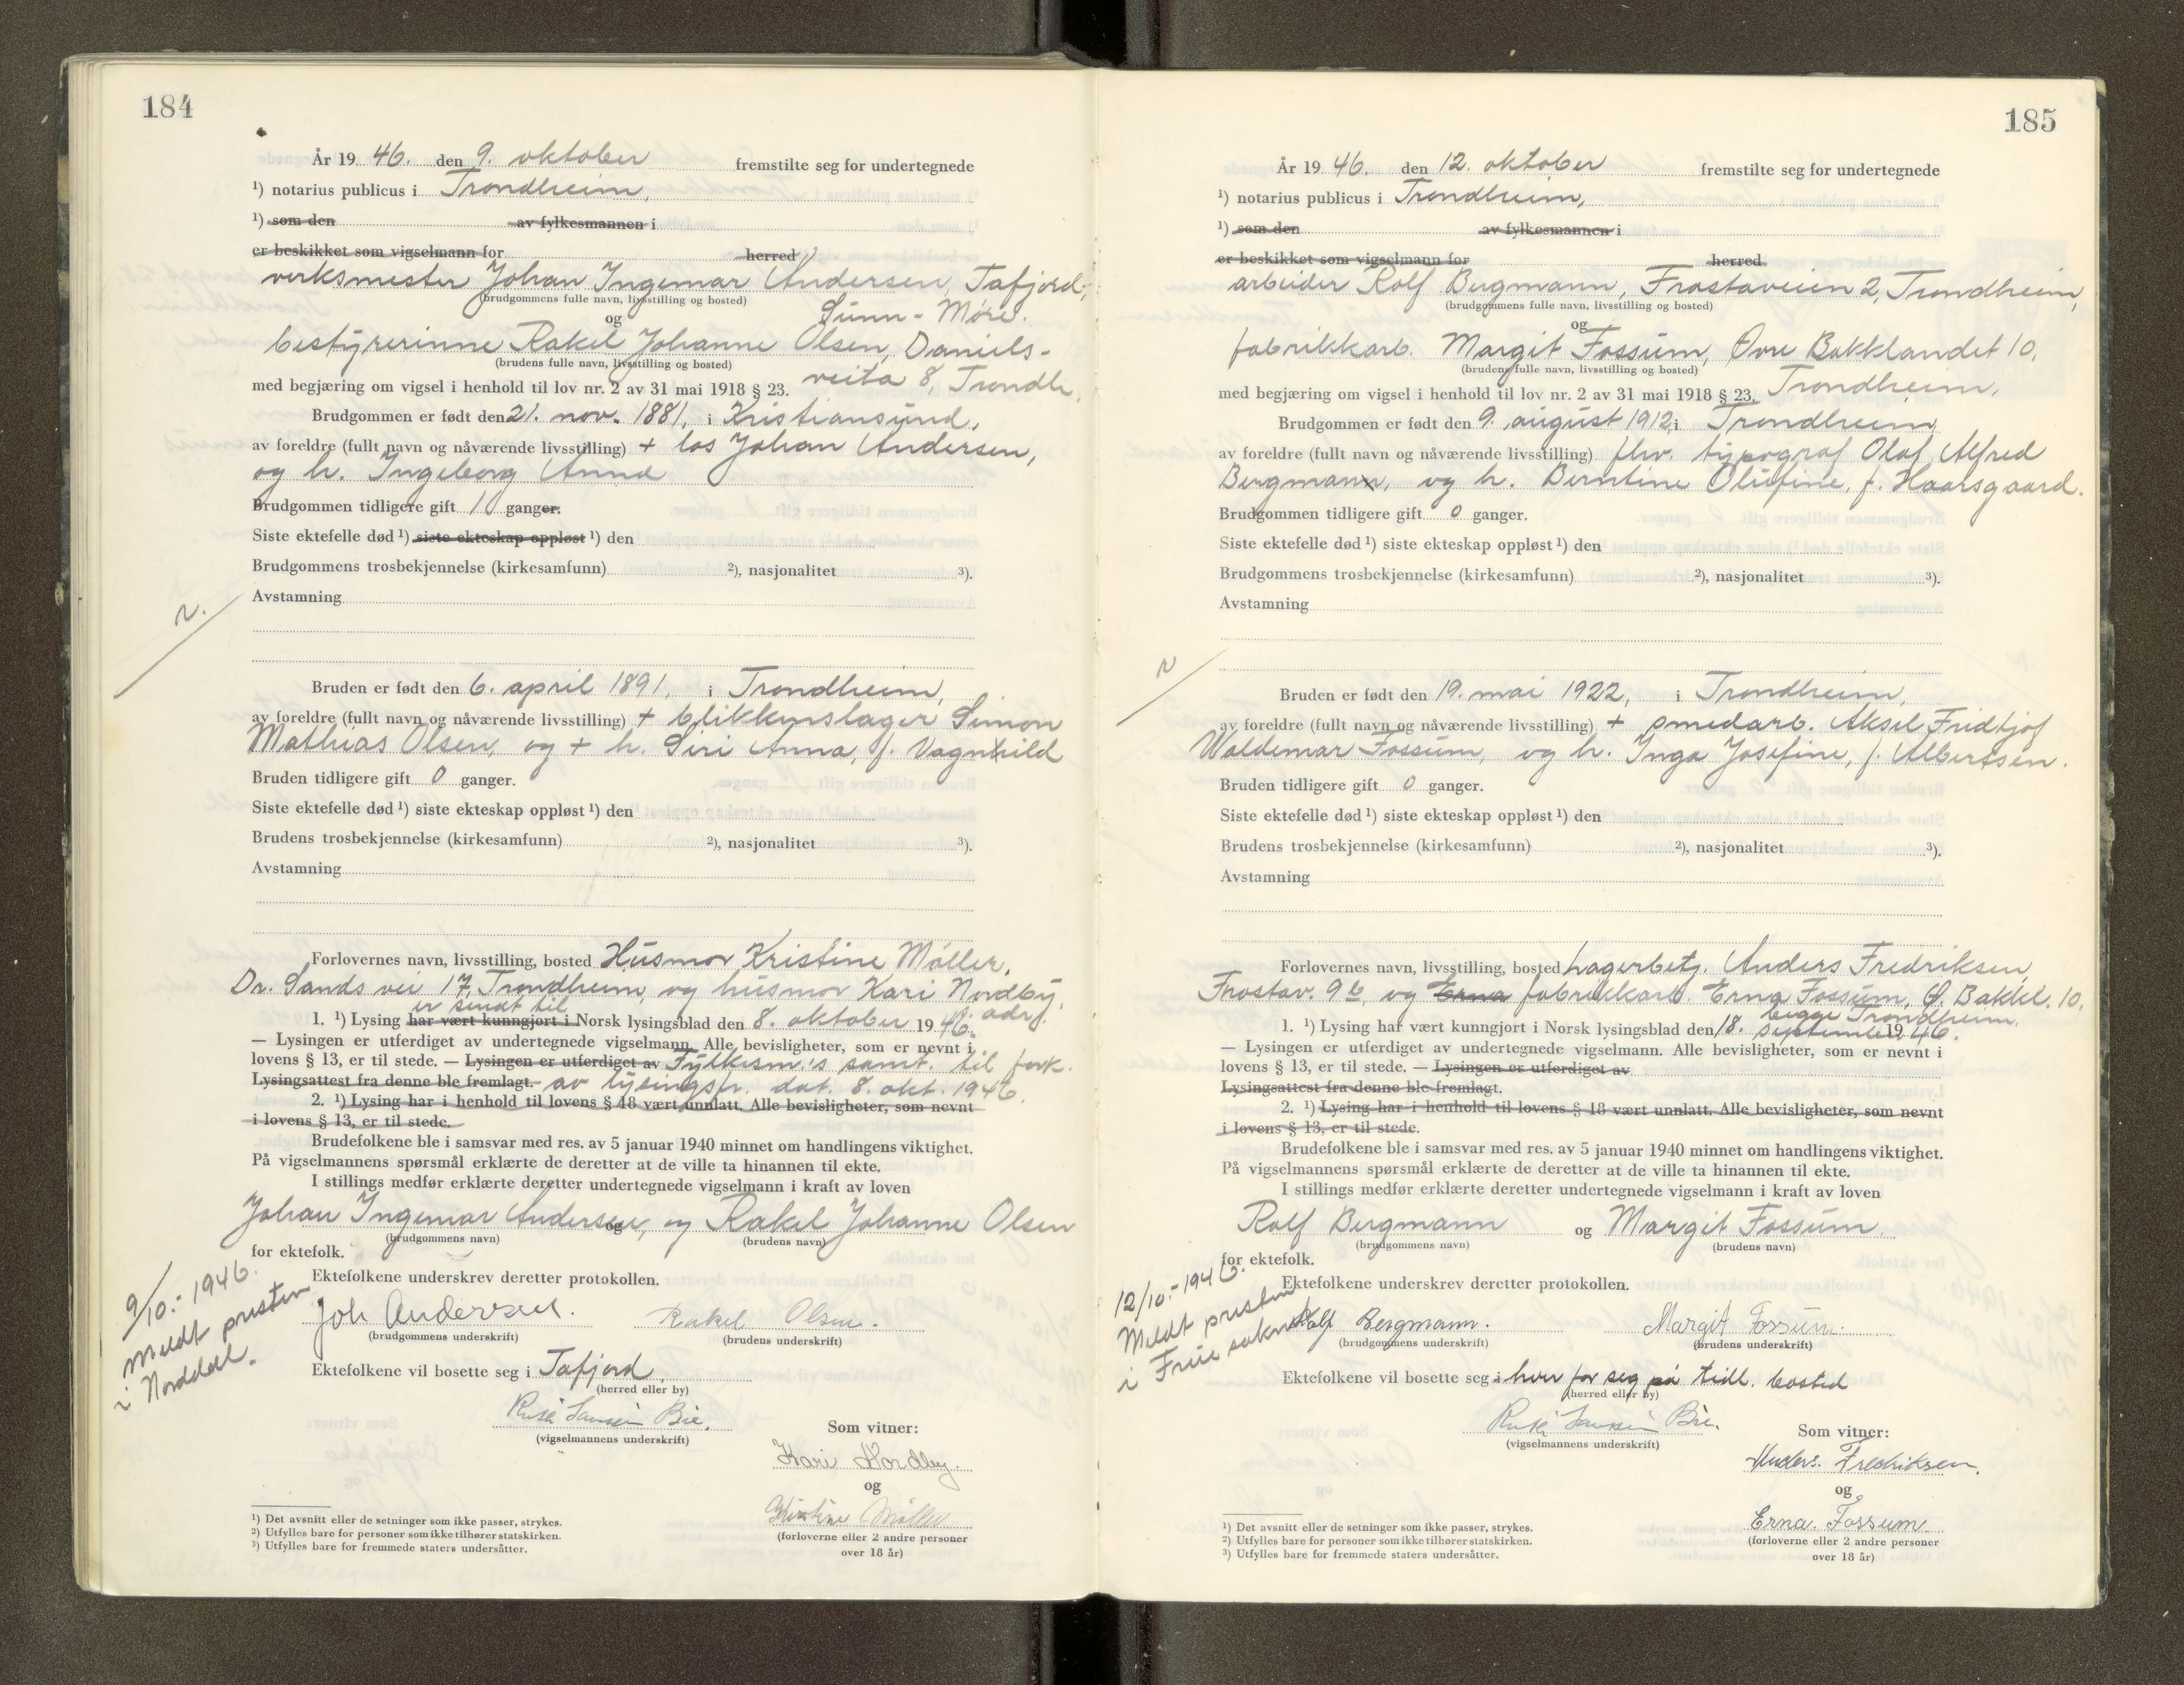 184
År 19 46. den 9. oktober fremstilte seg for undertegnede
¹) notarius publicus i Trondheim,
¹) som den av fylkesmannen i
er beskikket som vigselmann for herred
verksmester Johan Ingemar Andersen, Tafjord,
(brudgommens fulle navn, livsstilling og bosted)
og Sunn-Møre.
bestyrerinne Rakel Johanne Olsen, Daniels-
(brudens fulle navn, livsstilling og bosted)
med begjæring om vigsel i henhold til lov nr. 2 av 31 mai 1918 § 23. veita 8, Trondh.
Brudgommen er født den 21. nov. 1881, i Kristiansund,
av foreldre (fullt navn og nåværende livsstilling) + los Johan Andersen,
og h. Ingeborg Anna
Brudgommen tidligere gift 1 ganger.
Siste ektefelle død ¹) siste ekteskap oppløst ¹) den
Brudgommens trosbekjennelse (kirkesamfunn) ²), nasjonalitet ³).
Avstamning
Bruden er født den 6. april 1891, i Trondheim,
av foreldre (fullt navn og nåværende livsstilling) + blikkenslager Simon
Mathias Olsen, og + h. Siri Anna, f. Vagnhild
Bruden tidligere gift 0 ganger.
Siste ektefelle død ¹) siste ekteskap oppløst ¹) den
Brudens trosbekjennelse (kirkesamfunn) ²), nasjonalitet ³).
Avstamning
Forlovernes navn, livsstilling, bosted Husmor Kristine Møller,
Dr. Sands vei 17, Trondheim, og husmor Kari Nordby,
er sendt til adr.
1. ¹) Lysing har vært kunngjort i Norsk lysingsblad den 8. oktober 19 46.
— Lysingen er utferdiget av undertegnede vigselmann. Alle bevisligheter, som er nevnt i
lovens § 13, er til stede. — Lysingen er utferdiget av Fylkesm.'s samt. til fork.
Lysingsattest fra denne ble fremlagt. av lysingsfr. dat. 8. okt. 1946.
2. ¹) Lysing har i henhold til lovens § 18 vært unnlatt. Alle bevisligheter, som nevnt
i lovens § 13, er til stede.
Brudefolkene ble i samsvar med res. av 5 januar 1940 minnet om handlingens viktighet.
På vigselmannens spørsmål erklærte de deretter at de ville ta hinannen til ekte.
I stillings medfør erklærte deretter undertegnede vigselmann i kraft av loven
Johan Ingemar Andersen, og Rakel Johanne Olsen
(brudgommens navn) og (brudens navn)
for ektefolk.
Ektefolkene underskrev deretter protokollen.
9/10.-1946.
Meldt presten
i Norddal.
Joh Andersen. Rakel Olsen.
(brudgommens underskrift) (brudens underskrift)
Ektefolkene vil bosette seg i Tafjord,
(herred eller by)
Bie.
(vigselmannens underskrift)
Som vitner:
Kari Nordby.
og
Kristine Møller
(forloverne eller 2 andre personer
over 18 år)
¹) Det avsnitt eller de setninger som ikke passer, strykes.
²) Utfylles bare for personer som ikke tilhører statskirken.
³) Utfylles bare for fremmede staters undersåtter.
185
År 19 46. den 12. oktober fremstilte seg for undertegnede
¹) notarius publicus i Trondheim,
¹) som den av fylkesmannen i
er beskikket som vigselmann for herred
arbeider Rolf Bergmann, Frostaveien 2, Trondheim,
(brudgommens fulle navn, livsstilling og bosted)
og
fabrikkarb. Margit Fossum, Øvre Bakklandet 10,
(brudens fulle navn, livsstilling og bosted)
med begjæring om vigsel i henhold til lov nr. 2 av 31 mai 1918 § 23. Trondheim,
Brudgommen er født den 9. august 1912, i Trondheim,
av foreldre (fullt navn og nåværende livsstilling) fhv. typograf Olaf Alfred
Bergmann, og h. Berntine Olufine, f. Haarsgaard.
Brudgommen tidligere gift 0 ganger.
Siste ektefelle død ¹) siste ekteskap oppløst ¹) den
Brudgommens trosbekjennelse (kirkesamfunn) ²), nasjonalitet ³).
Avstamning
Bruden er født den 19. mai 1922, i Trondheim,
av foreldre (fullt navn og nåværende livsstilling) + smedarb. Aksel Fridtjof
Waldemar Fossum, og h. Inga Josefine, f. Albertsen.
Bruden tidligere gift 0 ganger.
Siste ektefelle død ¹) siste ekteskap oppløst ¹) den
Brudens trosbekjennelse (kirkesamfunn) ²), nasjonalitet ³).
Avstamning
Forlovernes navn, livsstilling, bosted Lagerbetj. Anders Fredriksen,
Frostav. 9b, og Erna fabrikkarb. Erna Fossum, Ø. Bakkl. 10,
begge Trondheim.
1. ¹) Lysing har vært kunngjort i Norsk lysingsblad den 18. september 19 46.
— Lysingen er utferdiget av undertegnede vigselmann. Alle bevisligheter, som er nevnt i
lovens § 13, er til stede. — Lysingen er utferdiget av
Lysingsattest fra denne ble fremlagt.
2. ¹) Lysing har i henhold til lovens § 18 vært unnlatt. Alle bevisligheter, som nevnt
i lovens § 13, er til stede.
Brudefolkene ble i samsvar med res. av 5 januar 1940 minnet om handlingens viktighet.
På vigselmannens spørsmål erklærte de deretter at de ville ta hinannen til ekte.
I stillings medfør erklærte deretter undertegnede vigselmann i kraft av loven
Rolf Bergmann og Margit Fossum.
(brudgommens navn) (brudens navn)
for ektefolk.
Ektefolkene underskrev deretter protokollen.
12/10.-1946.
Meldt presten
i Frue sokn.
Rolf Bergmann. Margit Fossum.
(brudgommens underskrift) (brudens underskrift)
Ektefolkene vil bosette seg i hver for seg på tidl. bosted
(herred eller by)
Bie.
(vigselmannens underskrift)
Som vitner:
Anders. Fredriksen.
og
Erna. Fossum.
(forloverne eller 2 andre personer
over 18 år)
¹) Det avsnitt eller de setninger som ikke passer, strykes.
²) Utfylles bare for personer som ikke tilhører statskirken.
³) Utfylles bare for fremmede staters undersåtter.